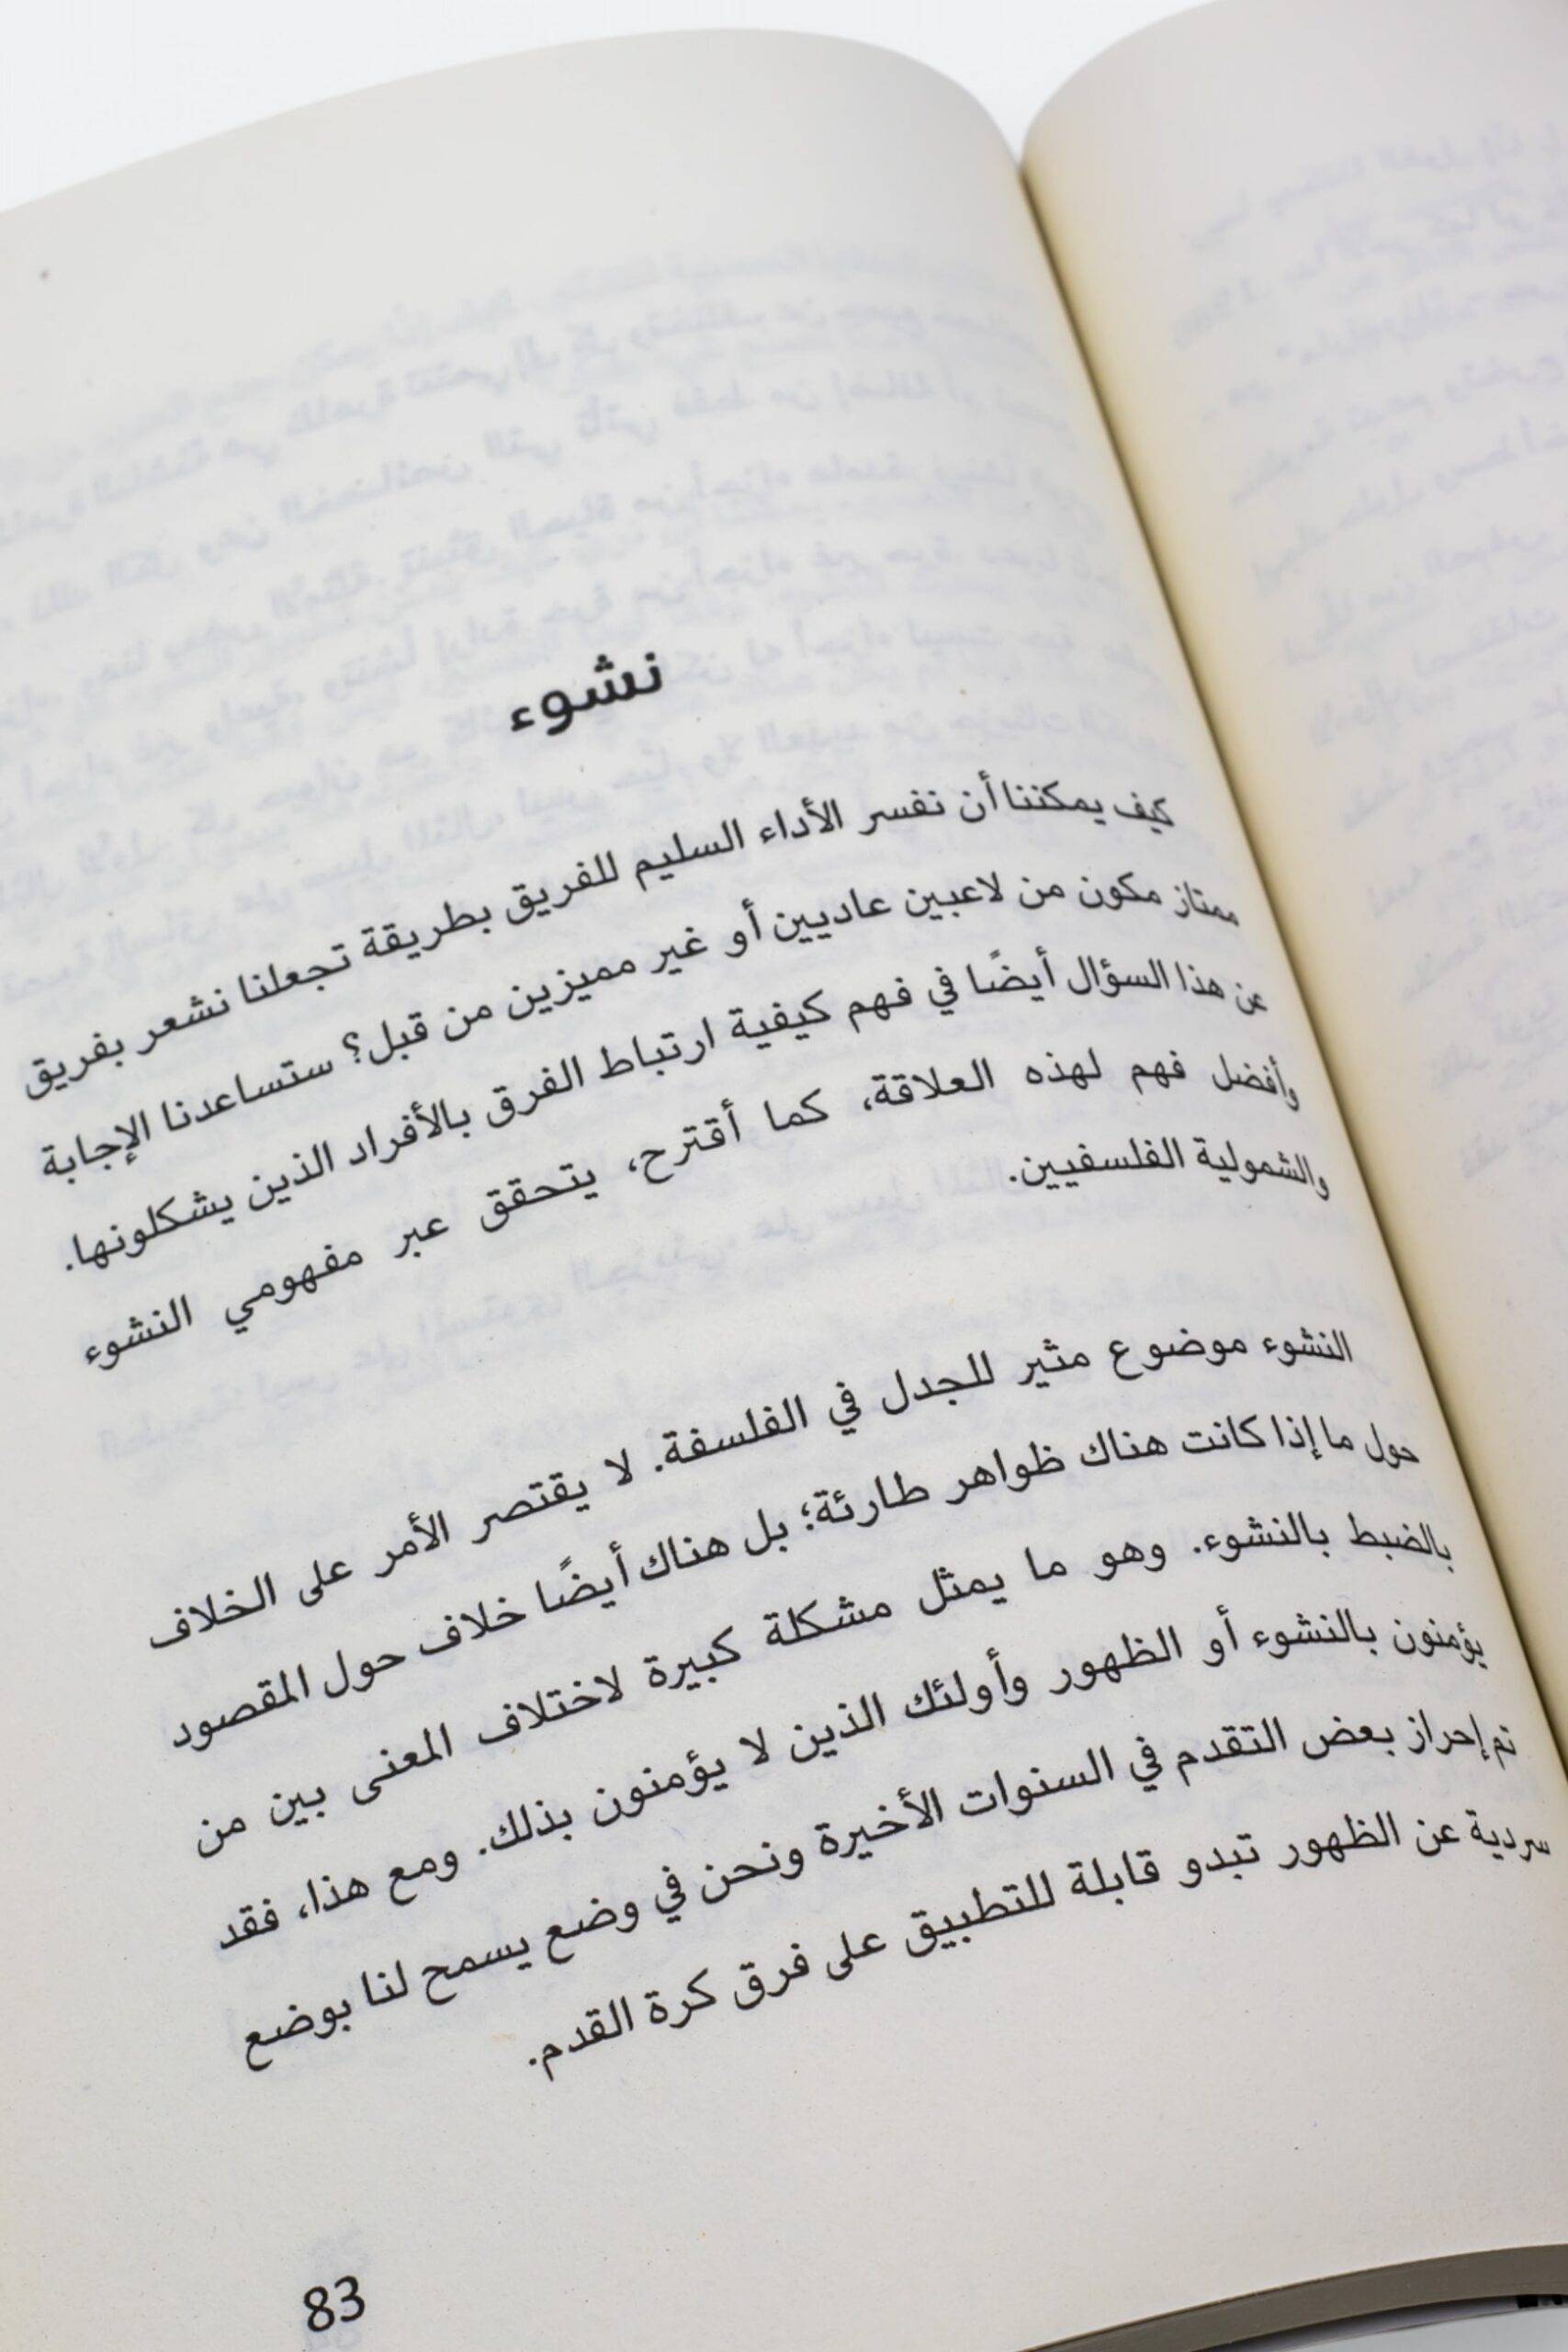 نشوء
كيف يمكننا أن نفسر الأداء السليم للفريق بطريقة تجعلنا نشعر بفريق
ممتاز مكون من لاعبين عاديين أو غير مميزين من قبل؟ ستساعدنا الإجابة
عن هذا السؤال أيضًا في فهم كيفية ارتباط الفرق بالأفراد الذين يشكلونها.
وأفضل فهم لهذه العلاقة، كما أقترح، يتحقق عبر مفهومي النشوء
والشمولية الفلسفيين.
النشوء موضوع مثير للجدل في الفلسفة. لا يقتصر الأمر على الخلاف
حول ما إذا كانت هناك ظواهر طارئة؛ بل هناك أيضًا خلاف حول المقصود
بالضبط بالنشوء. وهو ما يمثل مشكلة كبيرة لاختلاف المعنى بين من
يؤمنون بالنشوء أو الظهور وأولئك الذين لا يؤمنون بذلك. ومع هذا، فقد
تم إحراز بعض التقدم في السنوات الأخيرة ونحن في وضع يسمح لنا بوضع
سردية عن الظهور تبدو قابلة للتطبيق على فرق كرة القدم.
83